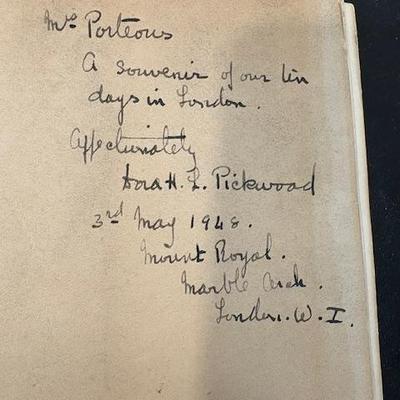 Mrs Porteous
A souvenir of our ten
days in London.
Affectionately
H. L. Pickwood
3rd May 1948.
Mount Royal.
Marble Arch.
London. W. I.